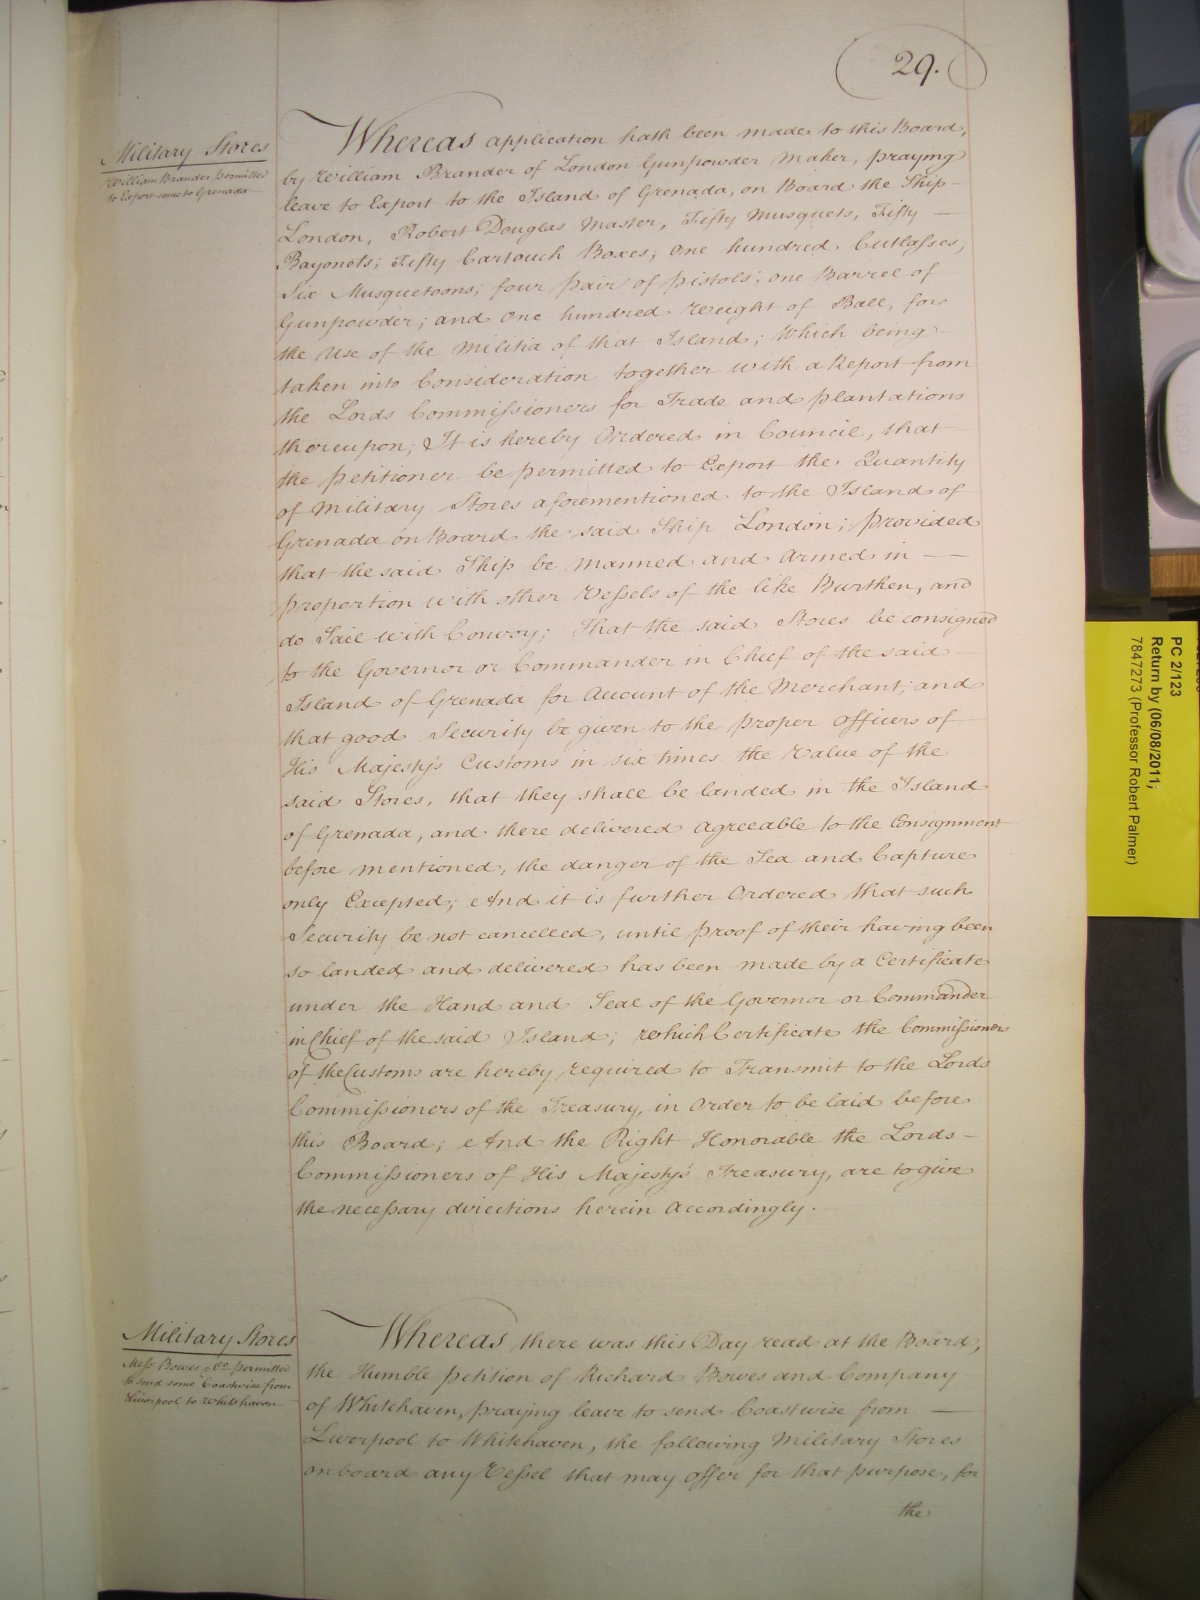 29.
Military Stores
William Brander permitted
to Export some to Grenada
Whereas application hath been made to this Board,
by William Brander of London Gunpowder Maker, praying
leave to Export to the Island of Grenada, on Board the Ship
London, Robert Douglas Master, Fifty Musquets, Fifty —
Bayonets; Fifty Cartouch Boxes; One hundred Cutlasses;
Six Musquetoons; four pair of pistols; one Barrel of
Gunpowder; and One hundred Weight of Ball, for
the Use of the Militia of that Island; Which being
taken into Consideration together with a Report from
the Lords Commissioners for Trade and plantations
thereupon; It is hereby Ordered in Council, that
the petitioner be permitted to Export the Quantity
of Military Stores aforementioned to the Island of
Grenada on Board the said Ship London; provided
that the said Ship be Manned and Armed in —
proportion with other Vessels of the like Burthen, and
do Sail with Convoy; That the said Stores be consigned
to the Governor or Commander in Chief of the said
Island of Grenada for Account of the Merchant; and
that good Security be given to the proper Officers of
His Majesty's Customs in six times the Value of the
said Stores, that they shall be landed in the Island
of Grenada, and there delivered agreeable to the Consignment
before mentioned, the danger of the Sea and Capture
only Excepted; And it is further Ordered that such
Security be not cancelled, until proof of their having been
so landed and delivered has been made by a Certificate
under the Hand and Seal of the Governor or Commander
in Chief of the said Island; which Certificate the Commissioners
of the Customs are hereby required to Transmit to the Lords
Commissioners of the Treasury, in Order to be laid before
this Board; And the Right Honorable the Lords
Commissioners of His Majesty's Treasury, are to give
the necessary directions herein Accordingly.
Military Stores
Mess Bowes & Co permitted
to send some Coastwise from
Liverpool to Whitehaven
Whereas there was this Day read at the Board,
the Humble petition of Richard Bowes and Company
of Whitehaven, praying leave to send Coastwise from —
Liverpool to Whitehaven, the following Military Stores
on board any Vessel that may offer for that purpose, for
the
PC 2/123
Return by (06/08/2011;
7847273 (Professor Robert Palmer)